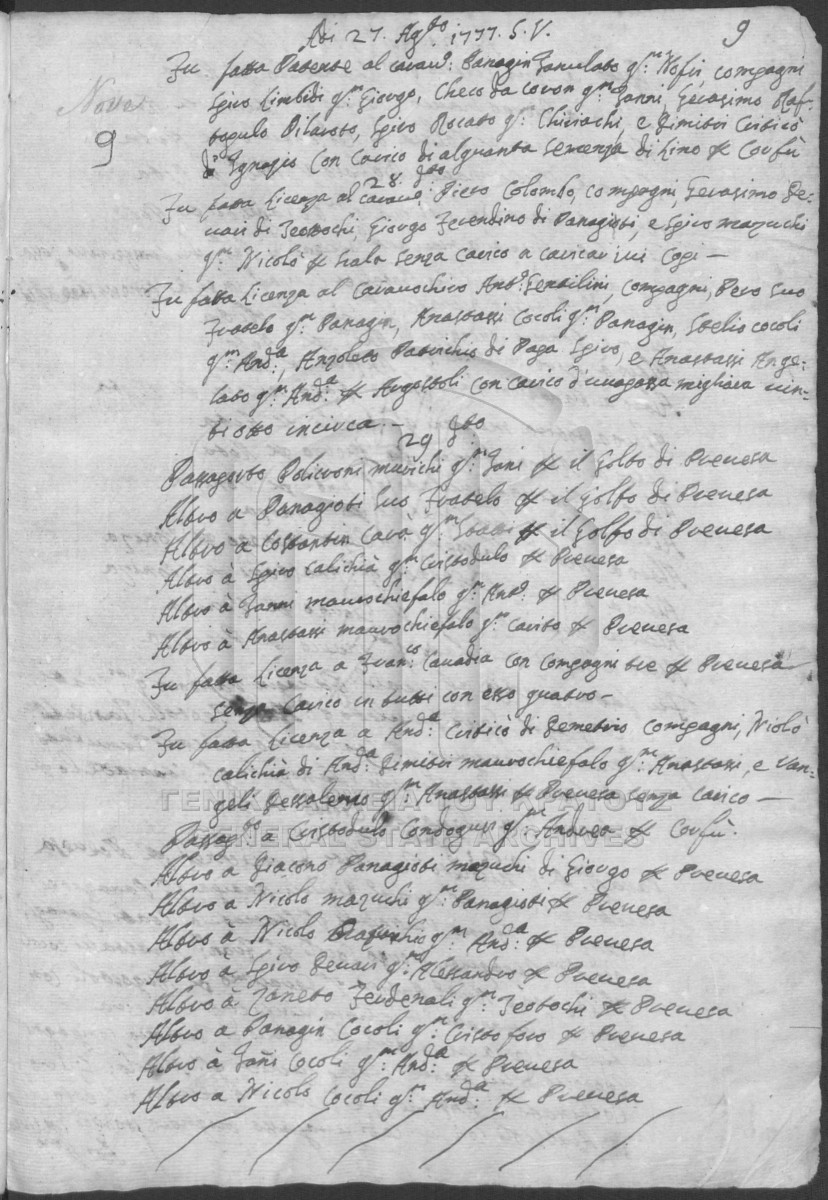 Adi 27. Agto 1777. S.V.
9
Nove
9
Fu fatta Patente al caravo: Panagin Zamulato qm: Nofri, compagni
Spiro Limbidi qm: Giorgo, Checo da coron qm: Zanni, Gerasimo Raf-
topulo Pilaroto, Spiro Rocato qm: Chiriachi, e Dimitri Critico
di Ignazio con carico di alquanta semenza di Lino per Corfù
28. do
Fu fatta Licenza al caravo: Piero Colombo, compagni, Gerasimo De-
nari di Teodochi, Giorgo Ferendino di Panagioti, e Spiro mazuchi
qm: Nicolò per Scala senza carico a caricar ivi Copi —
Fu fatta Licenza al Caravochiro Anto: Gentilini, compagni, Piero suo
Fratelo qm: Panagin, Anastassi Cocoli qm: Panagin, Stelio cocoli
qm: Anda:, Anzoleto Patrichio di Papa Spiro, e Anastassi Ange-
lato qm: Anda: per Argostoli con carico d'uvapassa migliara vin-
ti otto incirca —
29 do
Passaporto Policroni maurichi qm: Zani per il Golfo di Prevesa
Altro a Panagioti suo Fratelo per il Golfo di Prevesa
Altro a Costantin Cavà qm: Stati per il Golfo di Prevesa
Altro à Spiro calichià qm: Cristodulo per Prevesa
Altro à Zanni maurochiefalo qm: Anda: per Prevesa
Altro à Anastassi maurochiefalo qm: carito per Prevesa
Fu fatta Licenza a Franco: Canadia con compagni tre per Prevesa
senza Carico in tutti con esso quatro —
Fu fatta Licenza a Anda: Critico di Demetrio compagni, Nicolò
calichià di Anda: Dimitri maurochiefalo qm: Anastassi, e Van-
geli Dessalermo qm: Anastassi per Prevesa senza carico —
Passagto a Cristodulo Condogusi qm: Andrea per Corfù.
Altro a Giacomo Panagioti mazuchi di Giorgo per Prevesa
Altro a Nicolo mazuchi qm: Panagioti per Prevesa
Altro à Nicolo qm: Anda: per Prevesa
Altro à Spiro Denari qm: Alessandro per Prevesa
Altro à Zaneto Ferdenali qm: Teodochi per Prevesa
Altro a Panagin Cocoli qm: Cristoforo per Prevesa
Altro à Zani Cocoli qm: Anda: per Prevesa
Altro a Nicolo Cocoli qm: Anda: per Prevesa
ΓΕΝΙΚΑ ΑΡΧΕΙΑ ΤΟΥ ΚΡΑΤΟΥΣ
GENERAL STATE ARCHIVES